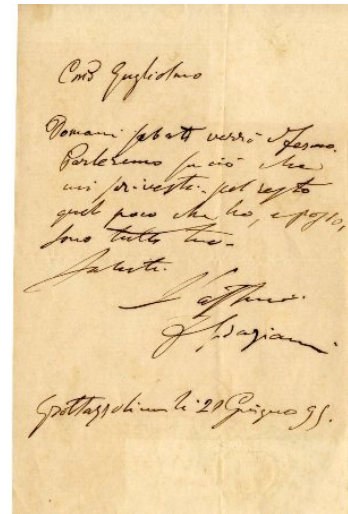 Caro Guglielmo
Domani sabato verrò a Fermo.
Parleremo su ciò che
mi scrivesti. pel resto
quel poco che ho, e posso,
sono tutto tuo.
Saluti.
L'aff
Grottazzolina li 21 Giugno 95.